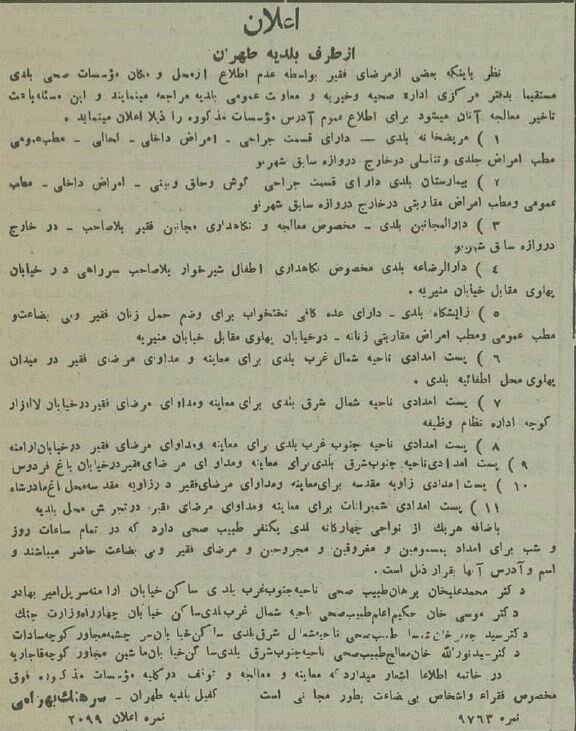 اعلان
از طرف بلدیه طهران
نظر باینکه بعضی از مرضای فقیر بواسطه عدم اطلاع از محل و مکان مؤسسات صحی بلدی
مستقیما بدفتر مرکزی اداره صحیه و خیریه و معاونت عمومی بلدیه مراجعه مینمایند و این مسئله باعث
تاخیر معالجه آنان میشود برای اطلاع عموم آدرس مؤسسات مذکوره را ذیلا اعلان مینماید .
۱ ) مریضخانه بلدی — دارای قسمت جراحی - امراض داخلی - اطفالی - مطب عمومی
مطب امراض جلدی و تناسلی در خارج دروازه سابق شهر نو
۲ ) بیمارستان بلدی دارای قسمت جراحی گوش و حلق و بینی - امراض داخلی - مطب
عمومی و مطب امراض مقاربتی در خارج دروازه سابق شهر نو
۳ ) دارالمجانین بلدی - مخصوص معالجه و نگاهداری مجانین فقیر بلاصاحب - در خارج
دروازه سابق شهر نو
٤ ) دارالرضاعه بلدی مخصوص نگاهداری اطفال شیرخوار بلاصاحب سرراهی در خیابان
پهلوی مقابل خیابان منیریه .
٥ ) زایشگاه بلدی - دارای عده کافی تختخواب برای وضع حمل زنان فقیر وبی بضاعت و
مطب عمومی ومطب امراض مقاربتی زنانه - درخیابان پهلوی مقابل خیابان منیریه
٦ ) پست امدادی ناحیه شمال غرب بلدی برای معاینه و مداوای مرضای فقیر در میدان
پهلوی محل اطفائیه بلدی .
۷ ) پست امدادی ناحیه شمال شرق بلدی برای معاینه ومداوای مرضای فقیر درخیابان لاله‌زار
کوچه اداره نظام وظیفه
۸ ) پست امدادی ناحیه جنوب غرب بلدی برای معاینه ومداوای مرضای فقیر درخیابان ارامنه
۹ ) پست امدادی ناحیه جنوب شرق بلدی برای معاینه ومداوای مرضای فقیر درخیابان باغ فردوس
۱۰ ) پست امدادی زاویه مقدسه برای معاینه ومداوای مرضای فقیر در زاویه مقدسه محل باغ مادرشاه
۱۱ ) پست امدادی شمیرانات برای معاینه ومداوای مرضای فقیر در تجریش محل بلدیه
باضافه هریك از نواحی چهارگانه بلدی یکنفر طبیب صحی دارد که در تمام ساعات روز
و شب برای امداد بمسمومین و مغروقین و مجروحین و مرضای فقیر وبی بضاعت حاضر میباشند و
اسم و آدرس آنها بقرار ذیل است .
دکتر محمد علیخان برهان طبیب صحی ناحیه جنوب غرب بلدی ساکن خیابان ارامنه سرپل امیر بهادر
دکتر موسی خان حکیم اعلم طبیب صحی ناحیه شمال غرب بلدی ساکن خیابان چهارراه وزارت جنك
دکتر سید طبیب صحی ناحیه شمال شرق بلدی ساکن خیابان سر چشمه مجاور کوچه سادات
دکتر سید نورالله خان معالج طبیب صحی ناحیه جنوب شرق بلدی ساکن خیابان ماشین مجاور کوچه قاجاریه
در خاتمه اطلاعا اشعار میدارد که معاینه و معالجه و توقف در کلیه مؤسسات مذکوره فوق
مخصوص فقراء واشخاص بی بضاعت بطور مجانی است کفیل بلدیه طهران - سرهنك بهرامی
نمره ۹۷٦۳ نمره اعلان ۲۰۹۹